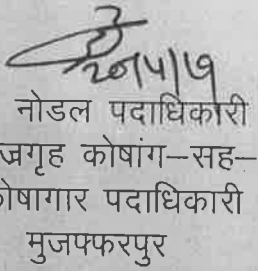 नोडल पदाधिकारी
जगृह कोषांग–सह–
ोषागार पदाधिकारी
मुजफ्फरपुर